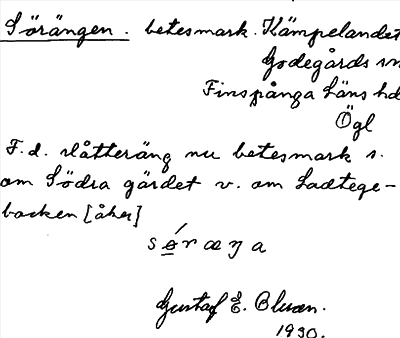 Sörängen. betesmark. Kämpelandet
Godegårds sn
Finspånga läns hd
Ögl
F.d. slåtteräng nu betesmark s.
om Södra gärdet v. om Ladtege-
backen [åker]
Gustaf E. Bluan.
1930.